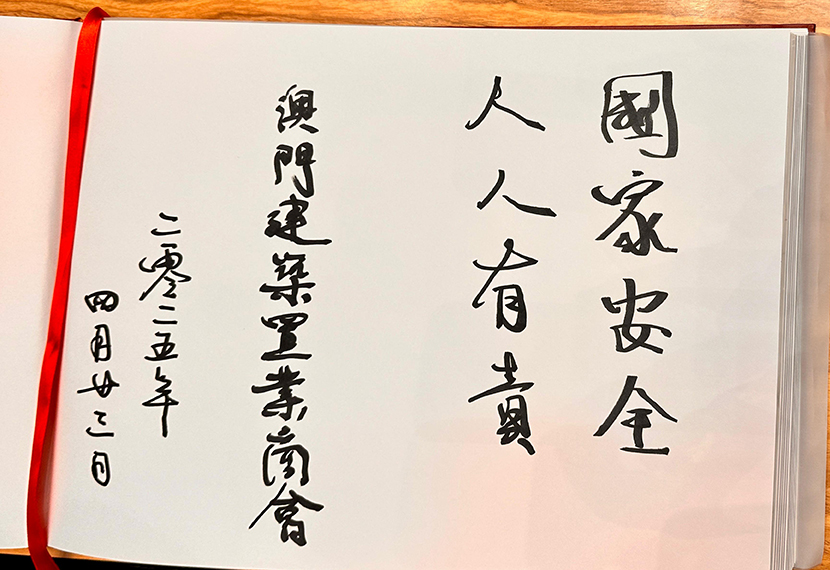 國家安全
人人有責
澳門建築置業商會
二零二五年
四月廿三日